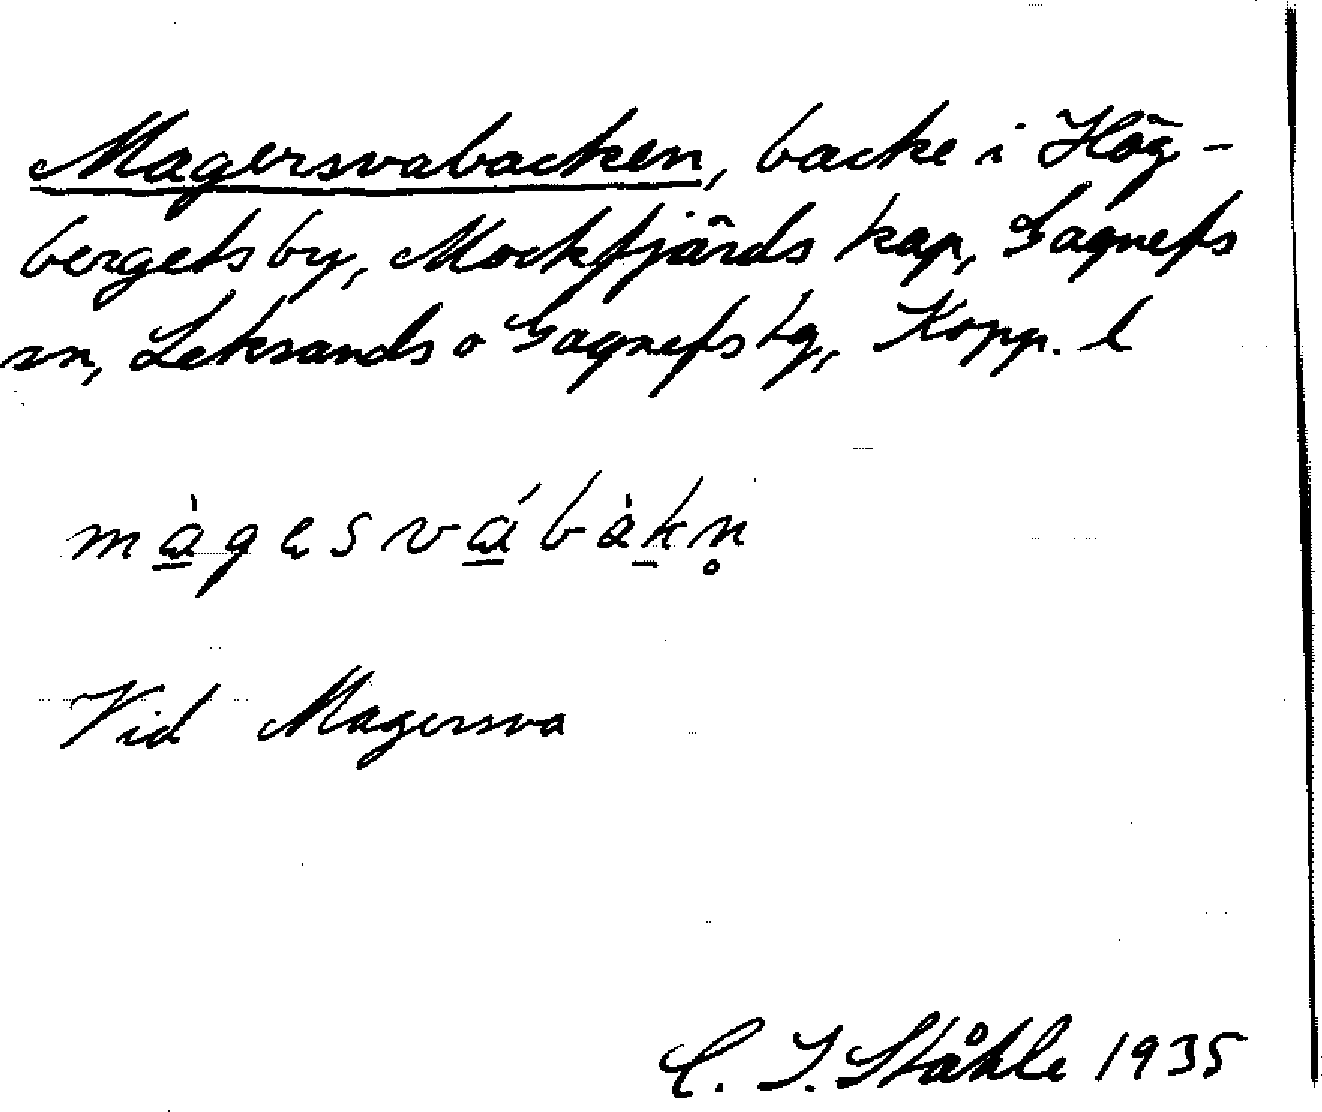 Magersvabacken, backe i Hög-
bergets by, Mockfjärds kap, Gagnefs
sn, Leksands o Gagnefs tg, Kopp. l
mȧ̱gesvá̱bȧ̱kn̥
Vid Magersva
C. I. Ståhle 1935